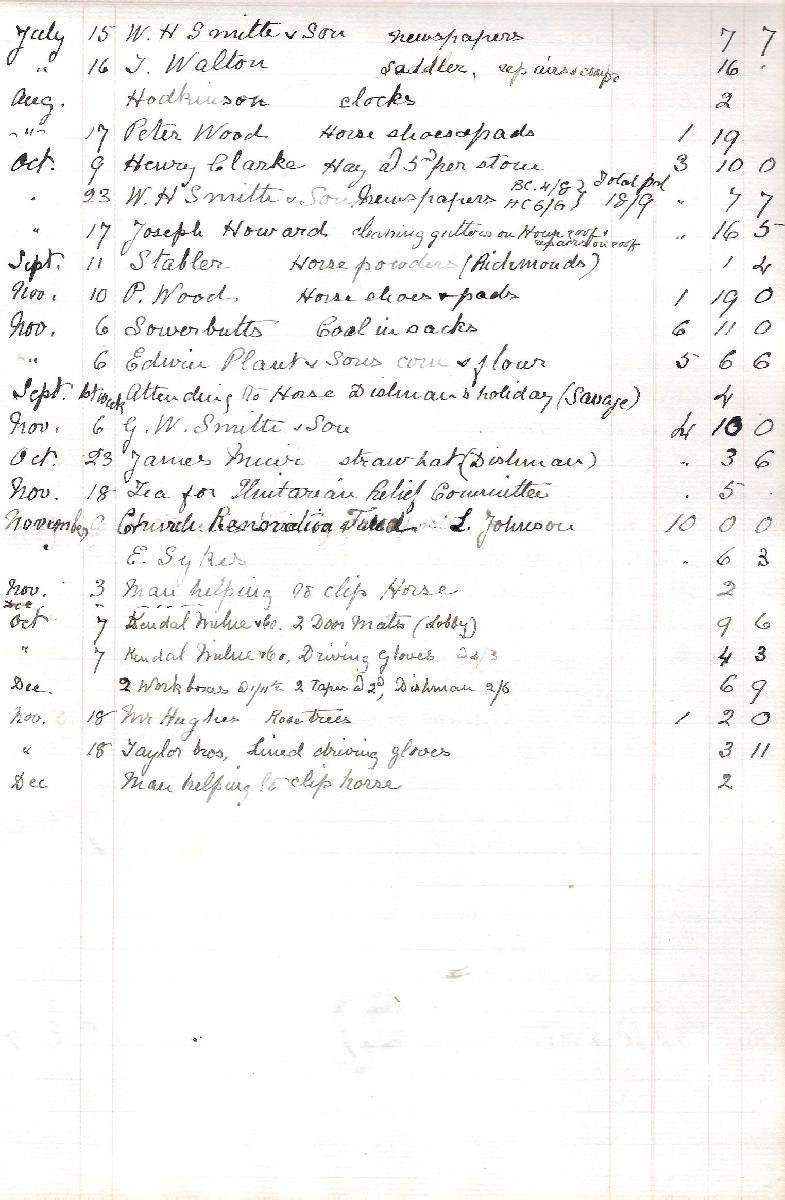 July 15 W. H Smith & Son newspapers 7 7
" 16 T. Walton Saddler, repairs & comp 16 .
Aug. Hodkinson clocks 2
" 17 Peter Wood Horse shoes & pads 1 19
Oct. 9 Henry Clarke Hay @ 5d per stone 3 10 0
" 23 W. H Smith & Son Newspapers BC. 4/8 HC 6/6 } Total pd 18/9 " 7 7
" 17 Joseph Howard cleaning gutters on House roof & repairs on roof " 16 5
Sept. 11 Stabler Horse powders (Richmonds) 1 4
Nov. 10 P. Wood Horse shoes & pads 1 19 0
Nov. 6 Sowerbutts Coal in sacks 6 11 0
" 6 Edwin Plant & Sons corn & flour 5 6 6
Sept. 1st week Attending to Horse Dishman's holiday (Savage) 4
Nov. 6 G. W. Smith & Son 4 10 0
Oct. 23 James Muir straw hat (Dishman) " 3 6
Nov. 18 Tea for Unitarian Relief Committee . 5 .
November 9 Church Renovation Fund L. Johnson 10 0 0
" E. Sykes " 6 3
Nov. 3 Man helping to clip Horse 2
Dec "
Oct 7 Kendal Milne & Co. 2 Door Mats (Lobby) 9 6
" 7 Kendal Milne & Co, Driving Gloves @ 4/3 4 3
Dec. 2 Work boxes 2 Tapes @ 2d, Dishman 2/6 6 9
Nov. 18 Mr Hughes Rose trees 1 2 0
" 18 Taylor Bros, Lined driving gloves 3 11
Dec Man helping to clip horse 2